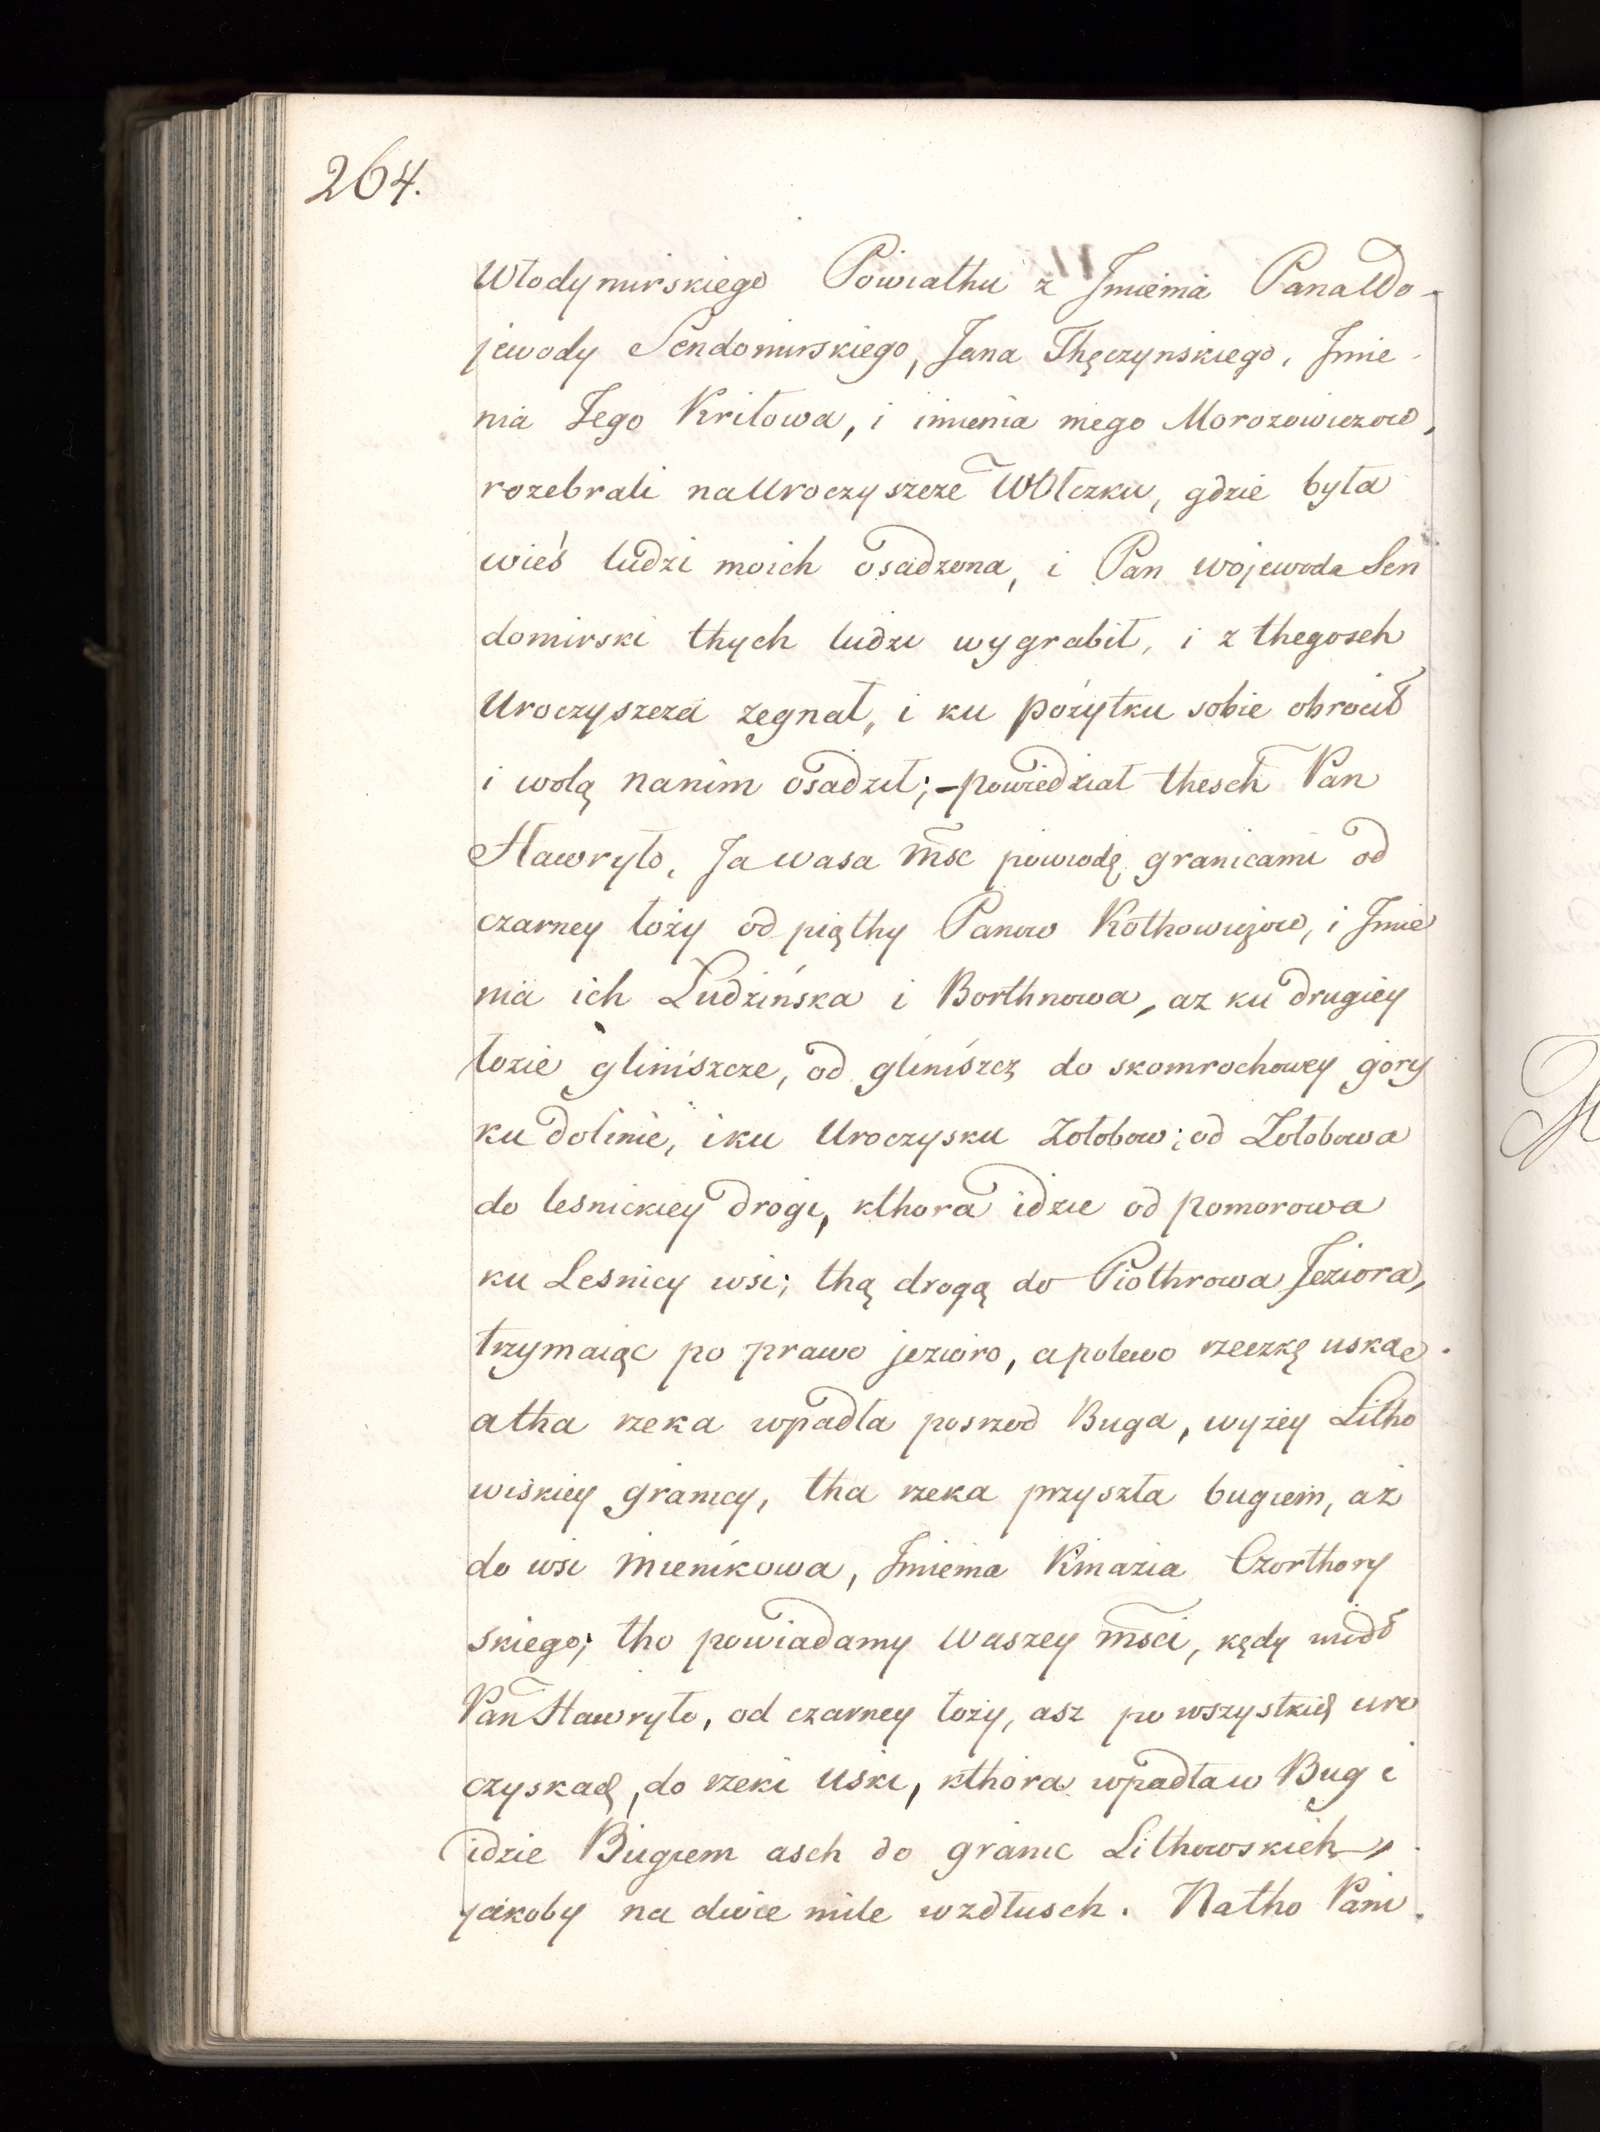 264.
Włodymirskiego Powiathu z Jmienia Pana Wo-
jewody Sendomirskiego, Jana Thęczynskiego, Jmie-
nia Jego Kriłowa, i imienia mego Morozowiczow,
rozebrali na Uroczyszcze Wołczku, gdzie była
wieś ludzi moich osadzona, i Pan wojewoda Sen
domirski thych ludzi wygrabił, i z thegosch
Uroczyszcza zegnał, i ku pożytku sobie obrocił
i wolą nanim osadził; – powiedział thesch Pan
Hawryło, Ja wasa msc powiodę granicami od
czarney łoży od piąthy Panow Kothowiczow, i Jmie
nia ich Ludzińska i Borthnowa, az ku drugiey
łozie gliniszcze, od gliniszcz do skomrochowey góry
ku dolinie, i ku Uroczysku Zołobow; od Zołobowa
do lesnickiey drogi, kthora idzie od pomorowa
ku Lesnicy wsi; thą drogą do Piothrowa Jeziora,
trzymaiąc po prawo jezioro, a polewo rzeczkę uskąę.
a tha rzeka wpadła posrzod Buga, wyżey Litho
wiskiey granicy, tha rzeka przyszła bugiem, aż
do wsi Mienikowa, Jmienia Kniazia Czorthory
skiego; tho powiadamy Waszey msci, kędy wiódł
Pan Hawryło, od czarney łoży, asz po wszystkię uro
czyskaę, do rzeki Uski, kthora wpadła w Bug i
idzie Bugiem asch do granic Lithowskich,
jakoby na dwie mile wzdłusch. Natho Pani.